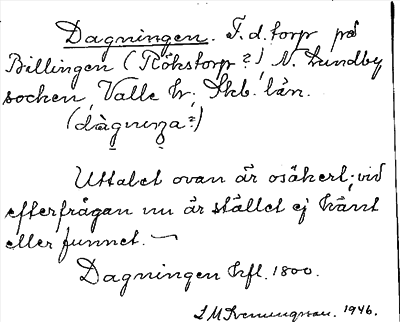 Dagningen. F.d. torp på
Billingen (Rökstorp?), N. Lundby
socken, Valle hr; Skb. län.
(dàgnenza?)
Uttalet ovan är osäkert; vid
efterfrågan nu är stället ej känt
eller funnet. —
Dagningen hfl. 1800.
1946.